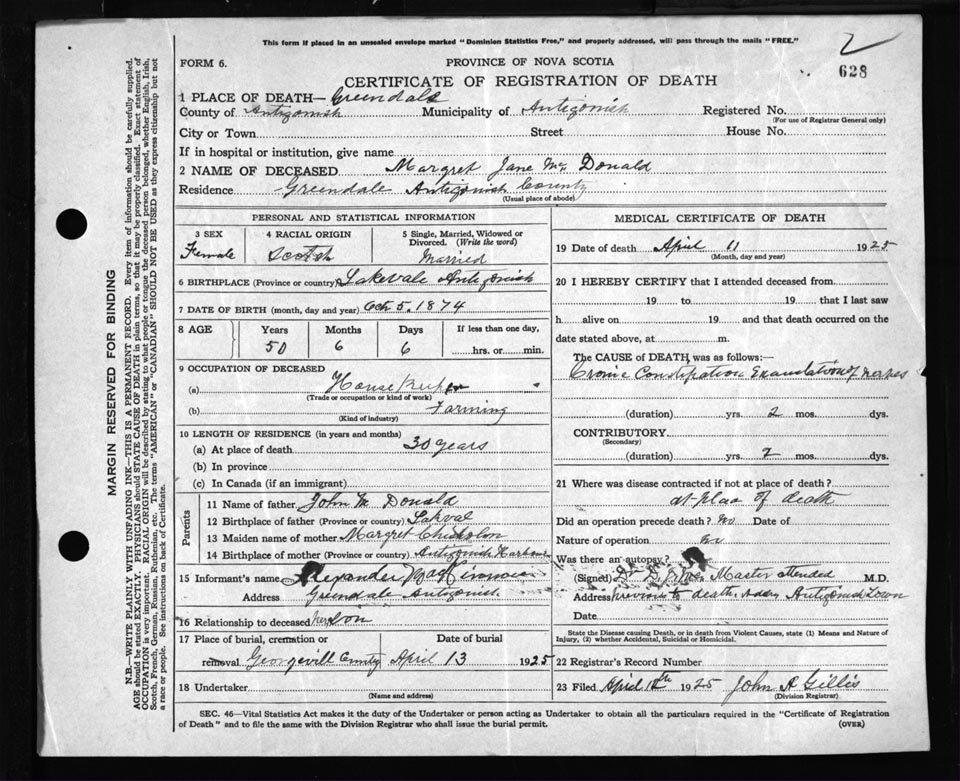 This form if placed in an unsealed envelope marked "Dominion Statistics Free," and properly addressed, will pass through the mails "FREE."
2
628
FORM 6.
PROVINCE OF NOVA SCOTIA
CERTIFICATE OF REGISTRATION OF DEATH
1 PLACE OF DEATH— Greendale
County of Antigonish Municipality of Antigonish Registered No.
(For use of Registrar General only)
City or Town Street House No.
If in hospital or institution, give name
2 NAME OF DECEASED Margret Jane Mc Donald
Residence Greendale Antigonish County
(Usual place of abode)
MARGIN RESERVED FOR BINDING
N.B.—WRITE PLAINLY WITH UNFADING INK—THIS IS A PERMANENT RECORD. Every item of information should be carefully supplied.
AGE should be stated EXACTLY. PHYSICIANS should STATE CAUSE OF DEATH in plain terms, so that it may be properly classified. Exact statement of
OCCUPATION is very important. RACIAL ORIGIN will be described by stating to what people or tongue the deceased person belonged, whether English, Irish,
Scotch, French, German, Russian, Ruthenian, etc. The terms "AMERICAN" or "CANADIAN" SHOULD NOT BE USED as they express citizenship but not
a race or people. See instructions on back of Certificate.
PERSONAL AND STATISTICAL INFORMATION
3 SEX
Female
4 RACIAL ORIGIN
Scotch
5 Single, Married, Widowed or
Divorced. (Write the word)
Married
6 BIRTHPLACE (Province or country) Lakevale Antigonish
7 DATE OF BIRTH (month, day and year) Oct 5. 1874
8 AGE Years Months Days If less than one day,
50 6 6 hrs. or min.
9 OCCUPATION OF DECEASED
(a) House Keeper
(Trade or occupation or kind of work)
(b) Farming
(Kind of industry)
10 LENGTH OF RESIDENCE (in years and months)
(a) At place of death 30 years
(b) In province
(c) In Canada (if an immigrant)
Parents
11 Name of father John Mc Donald
12 Birthplace of father (Province or country) Lakval
13 Maiden name of mother Margret Chisholm
14 Birthplace of mother (Province or country) Antigonish Harbour
15 Informant's name Alexander MacKinnon
Address Greendale Antigonish
16 Relationship to deceased her Son
17 Place of burial, cremation or Date of burial
removal Georgevill County April 13 1925
18 Undertaker
(Name and address)
MEDICAL CERTIFICATE OF DEATH
19 Date of death April 11 1925
(Month, day and year)
20 I HEREBY CERTIFY that I attended deceased from
19 to 19 that I last saw
h alive on 19 and that death occurred on the
date stated above, at m.
The CAUSE of DEATH was as follows:—
Cronic Constipation of nerves
(duration) yrs. 2 mos. dys.
CONTRIBUTORY
(Secondary)
(duration) yrs. 2 mos. dys.
21 Where was disease contracted if not at place of death?
at plac of death
Did an operation precede death? no Date of
Nature of operation no
Was there an autopsy?
(Signed) Master attended M.D.
Address previous to death. Addry Antigonish Town
Date
State the Disease causing Death, or in death from Violent Causes, state (1) Means and Nature of
Injury, (2) whether Accidental, Suicidal or Homicidal.
22 Registrar's Record Number
23 Filed April 1925 John R Gillis
(Division Registrar)
SEC. 46—Vital Statistics Act makes it the duty of the Undertaker or person acting as Undertaker to obtain all the particulars required in the "Certificate of Registration
of Death" and to file the same with the Division Registrar who shall issue the burial permit.
(OVER)